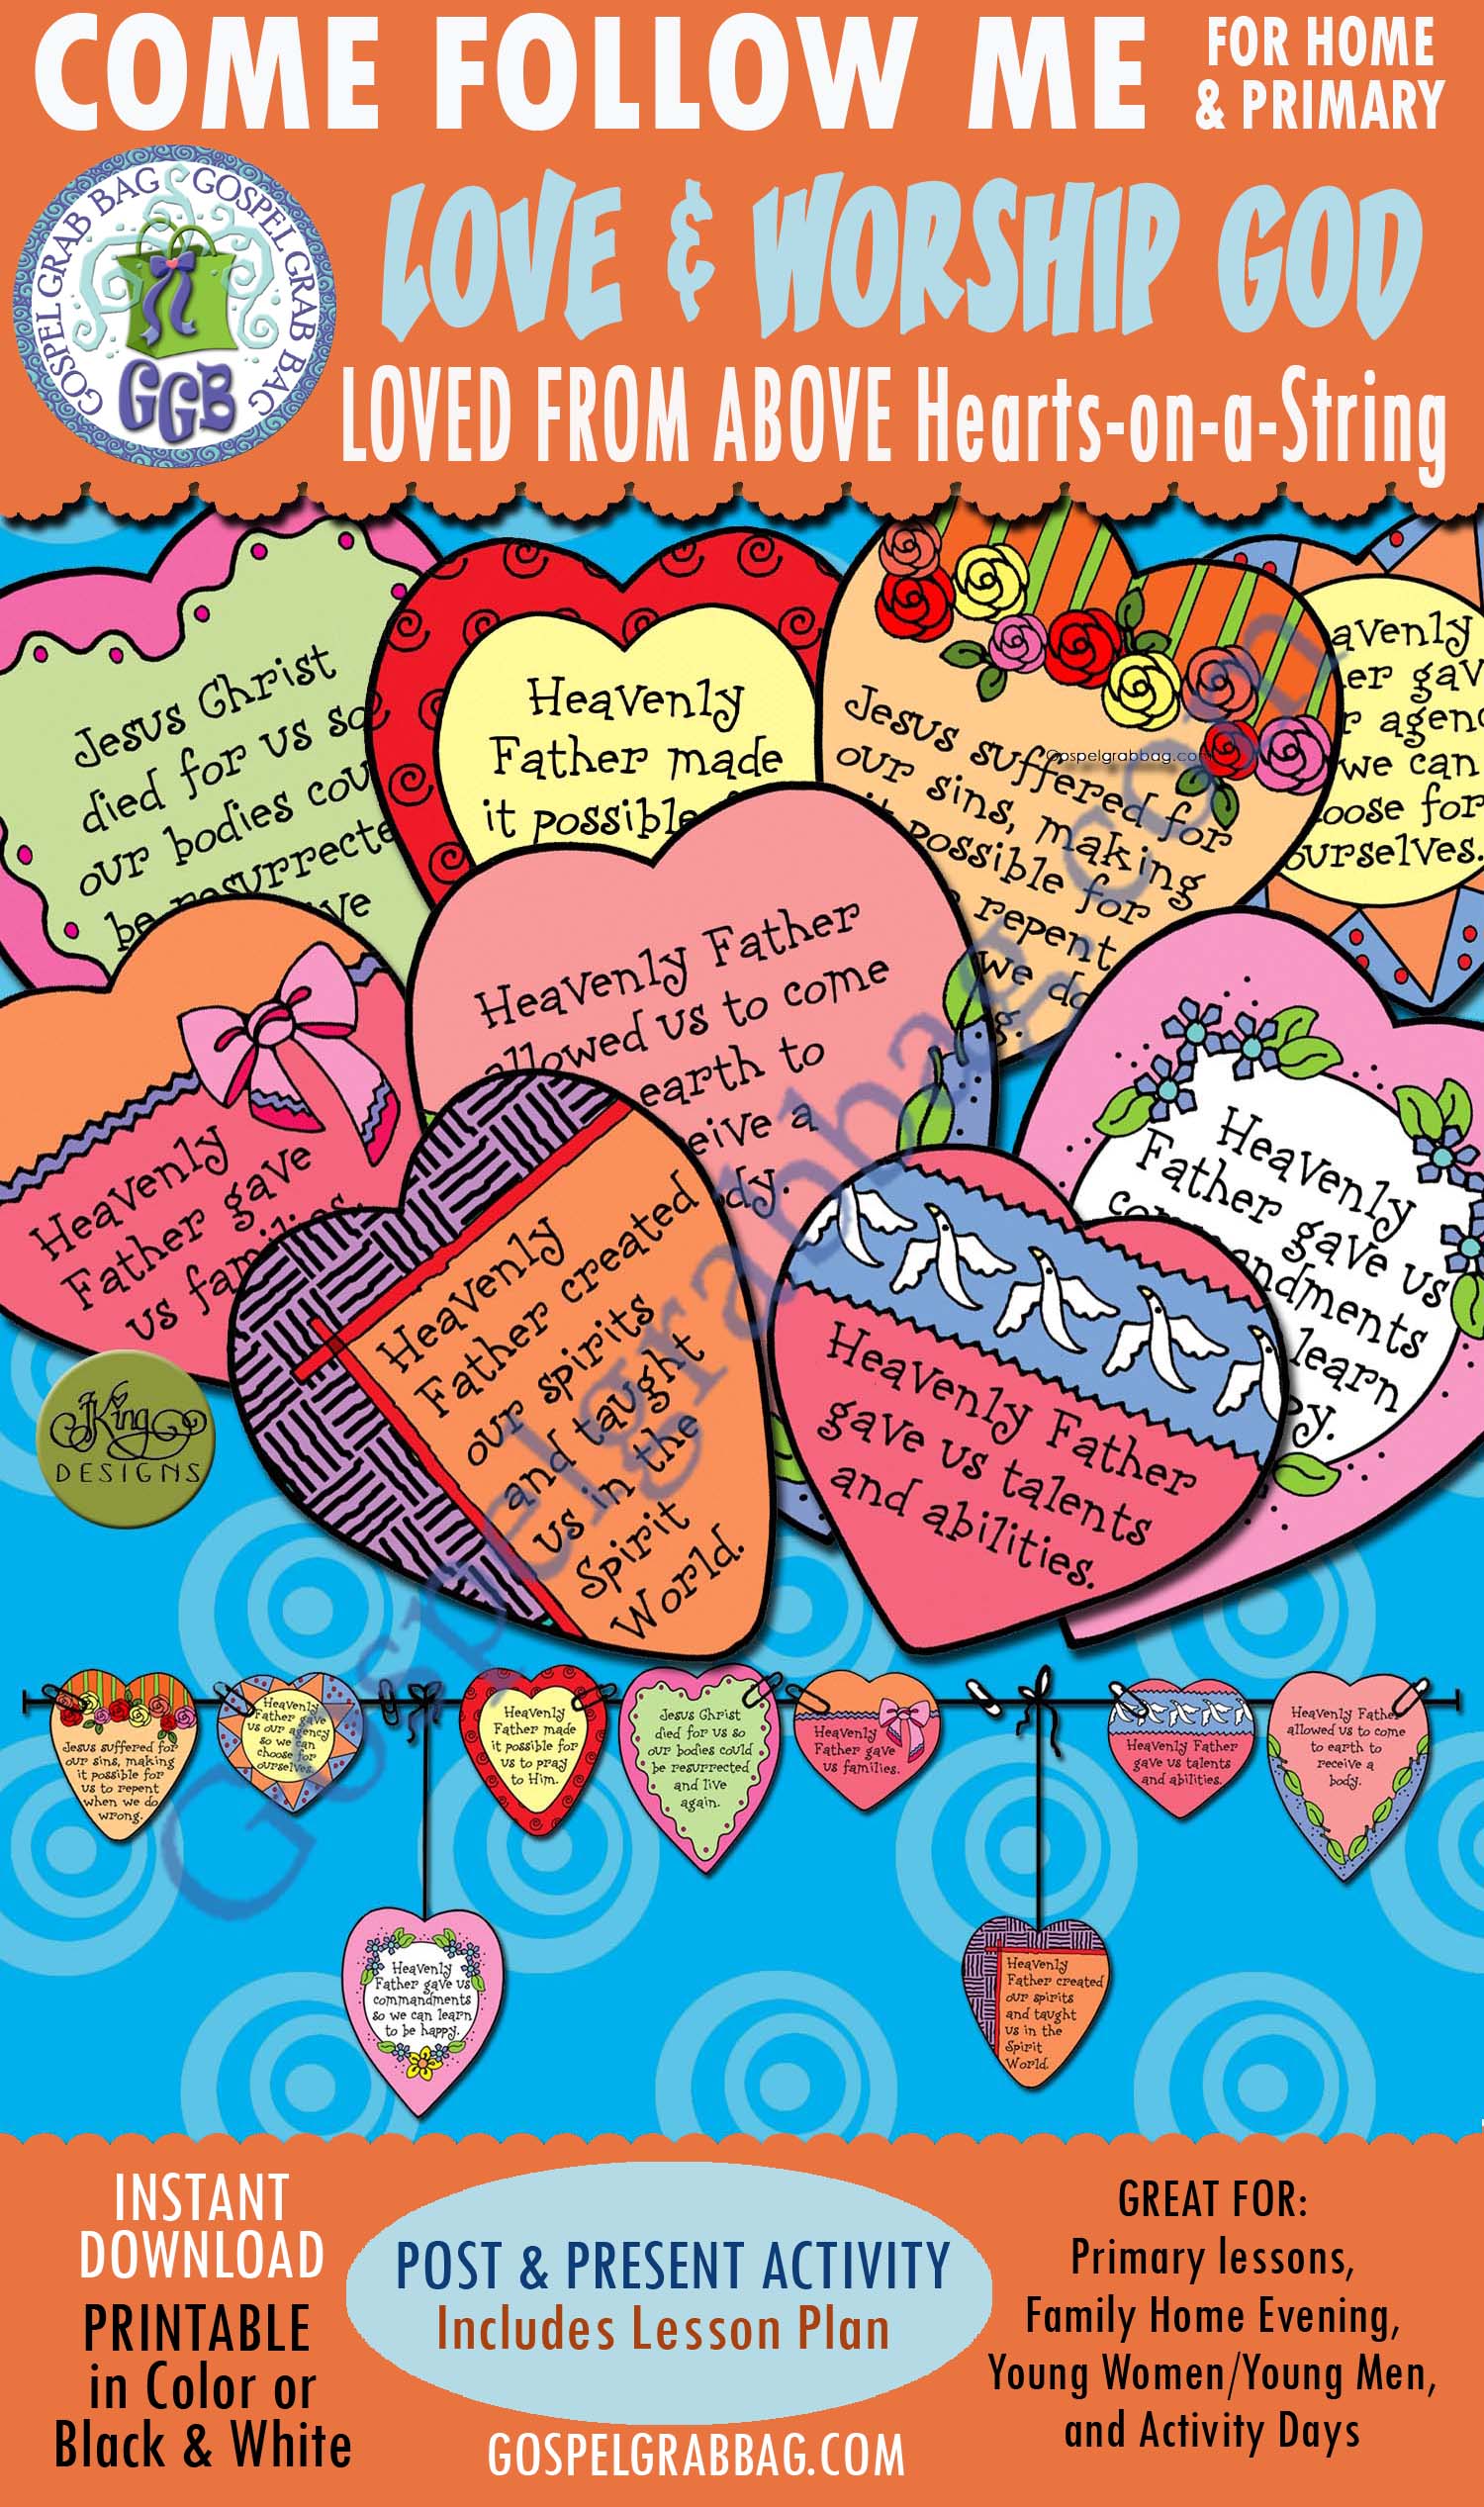 COME FOLLOW ME
FOR HOME
& PRIMARY
GOSPEL GRAB BAG GOSPEL GRAB BAG
GGB
LOVE & WORSHIP GOD
LOVED FROM ABOVE Hearts-on-a-String
Jesus Christ
died for us so
our bodies cou
be resurrecte
ve
Heavenly
Father made
it possible
Jesus suffered for
our sins, making
it possible for
repent
we do
g.
Gospelgrabbag.com
avenly
er gav
r agenc
we can
oose for
ourselves.
Heavenly Father
allowed us to come
earth to
eive a
dy.
Heavenly
Father gave
us families.
Heavenly
Father created
our spirits
and taught
us in the
Spirit
World.
Heavenly Father
gave us talents
and abilities.
Heavenly
Father gave us
co ndments
learn
py.
JKing
DESIGNS
Gospelgrabbag.com
Jesus suffered for
our sins, making
it possible for
us to repent
when we do
wrong.
Heavenly
Father gave
us our agency
so we can
choose for
ourselves.
Heavenly
Father made
it possible for
us to pray
to Him.
Jesus Christ
died for us so
our bodies could
be resurrected
and live
again.
Heavenly
Father gave
us families.
Heavenly Father
gave us talents
and abilities.
Heavenly Father
allowed us to come
to earth to
receive a
body.
Heavenly
Father gave us
commandments
so we can learn
to be happy.
Heavenly
Father created
our spirits
and taught
us in the
Spirit
World.
INSTANT
DOWNLOAD
PRINTABLE
in Color or
Black & White
POST & PRESENT ACTIVITY
Includes Lesson Plan
GOSPELGRABBAG.COM
GREAT FOR:
Primary lessons,
Family Home Evening,
Young Women/Young Men,
and Activity Days